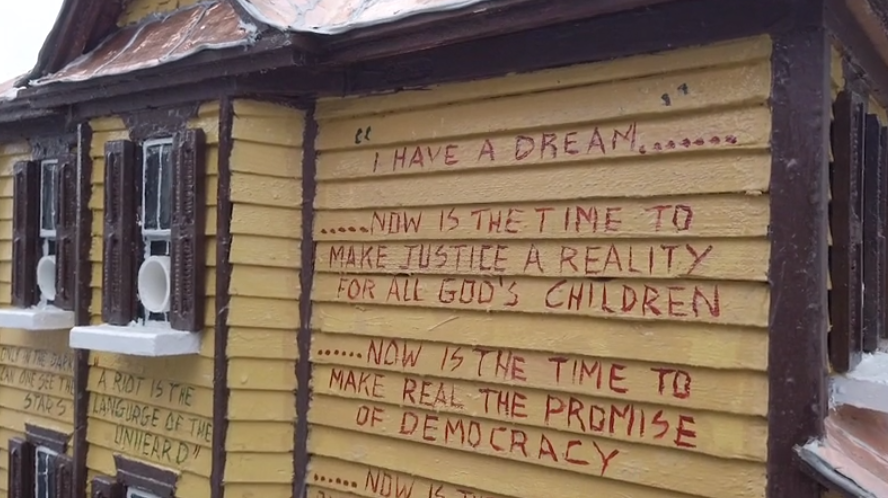 "I HAVE A DREAM......."
.....NOW IS THE TIME TO
MAKE JUSTICE A REALITY
FOR ALL GOD'S CHILDREN
......NOW IS THE TIME TO
MAKE REAL THE PROMISE
OF DEMOCRACY
......NOW IS THE
ONLY IN THE DARK
CAN ONE SEE THE
STARS
"A RIOT IS THE
LANGURGE OF THE
UNHEARD"